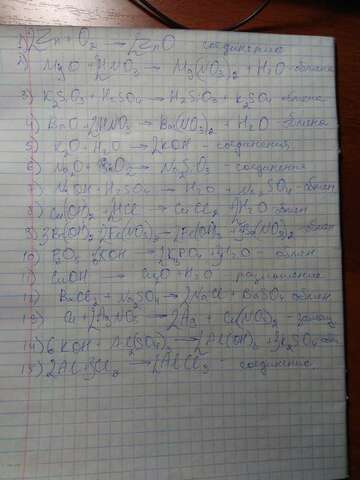 1) 2Zn + O2 → 2ZnO соединение
2) MgO + 2HNO3 → Mg(NO3)2 + H2O - обмена
3) K2SiO3 + H2SO4 → H2SiO3 + K2SO4 - обмена
4) BaO + 2HNO3 → Ba(NO3)2 + H2O - обмена
5) K2O + H2O → 2KOH - соединения
6) Na2O + → Na2SiO3 - соединения
7) NaOH + H2SO4 → H2O + Na2SO4 - обмен
8) Cu(OH)2 + 2HCl → CuCl2 + H2O обмен
9) обмен
10) + KOH → K3PO4 + H2O - обмен
11) CuOH → + H2O - разложение
12) BaCl2 + Na2SO4 → 2NaCl + BaSO4 обмен
13) Cu + 2AgNO3 → 2Ag + Cu(NO3)2 - замещ
14) 6KOH + Al2(SO4)3 → 2Al(OH)3 + 3K2SO4
15) 2Al + 3Cl2 → 2AlCl3 - соединение